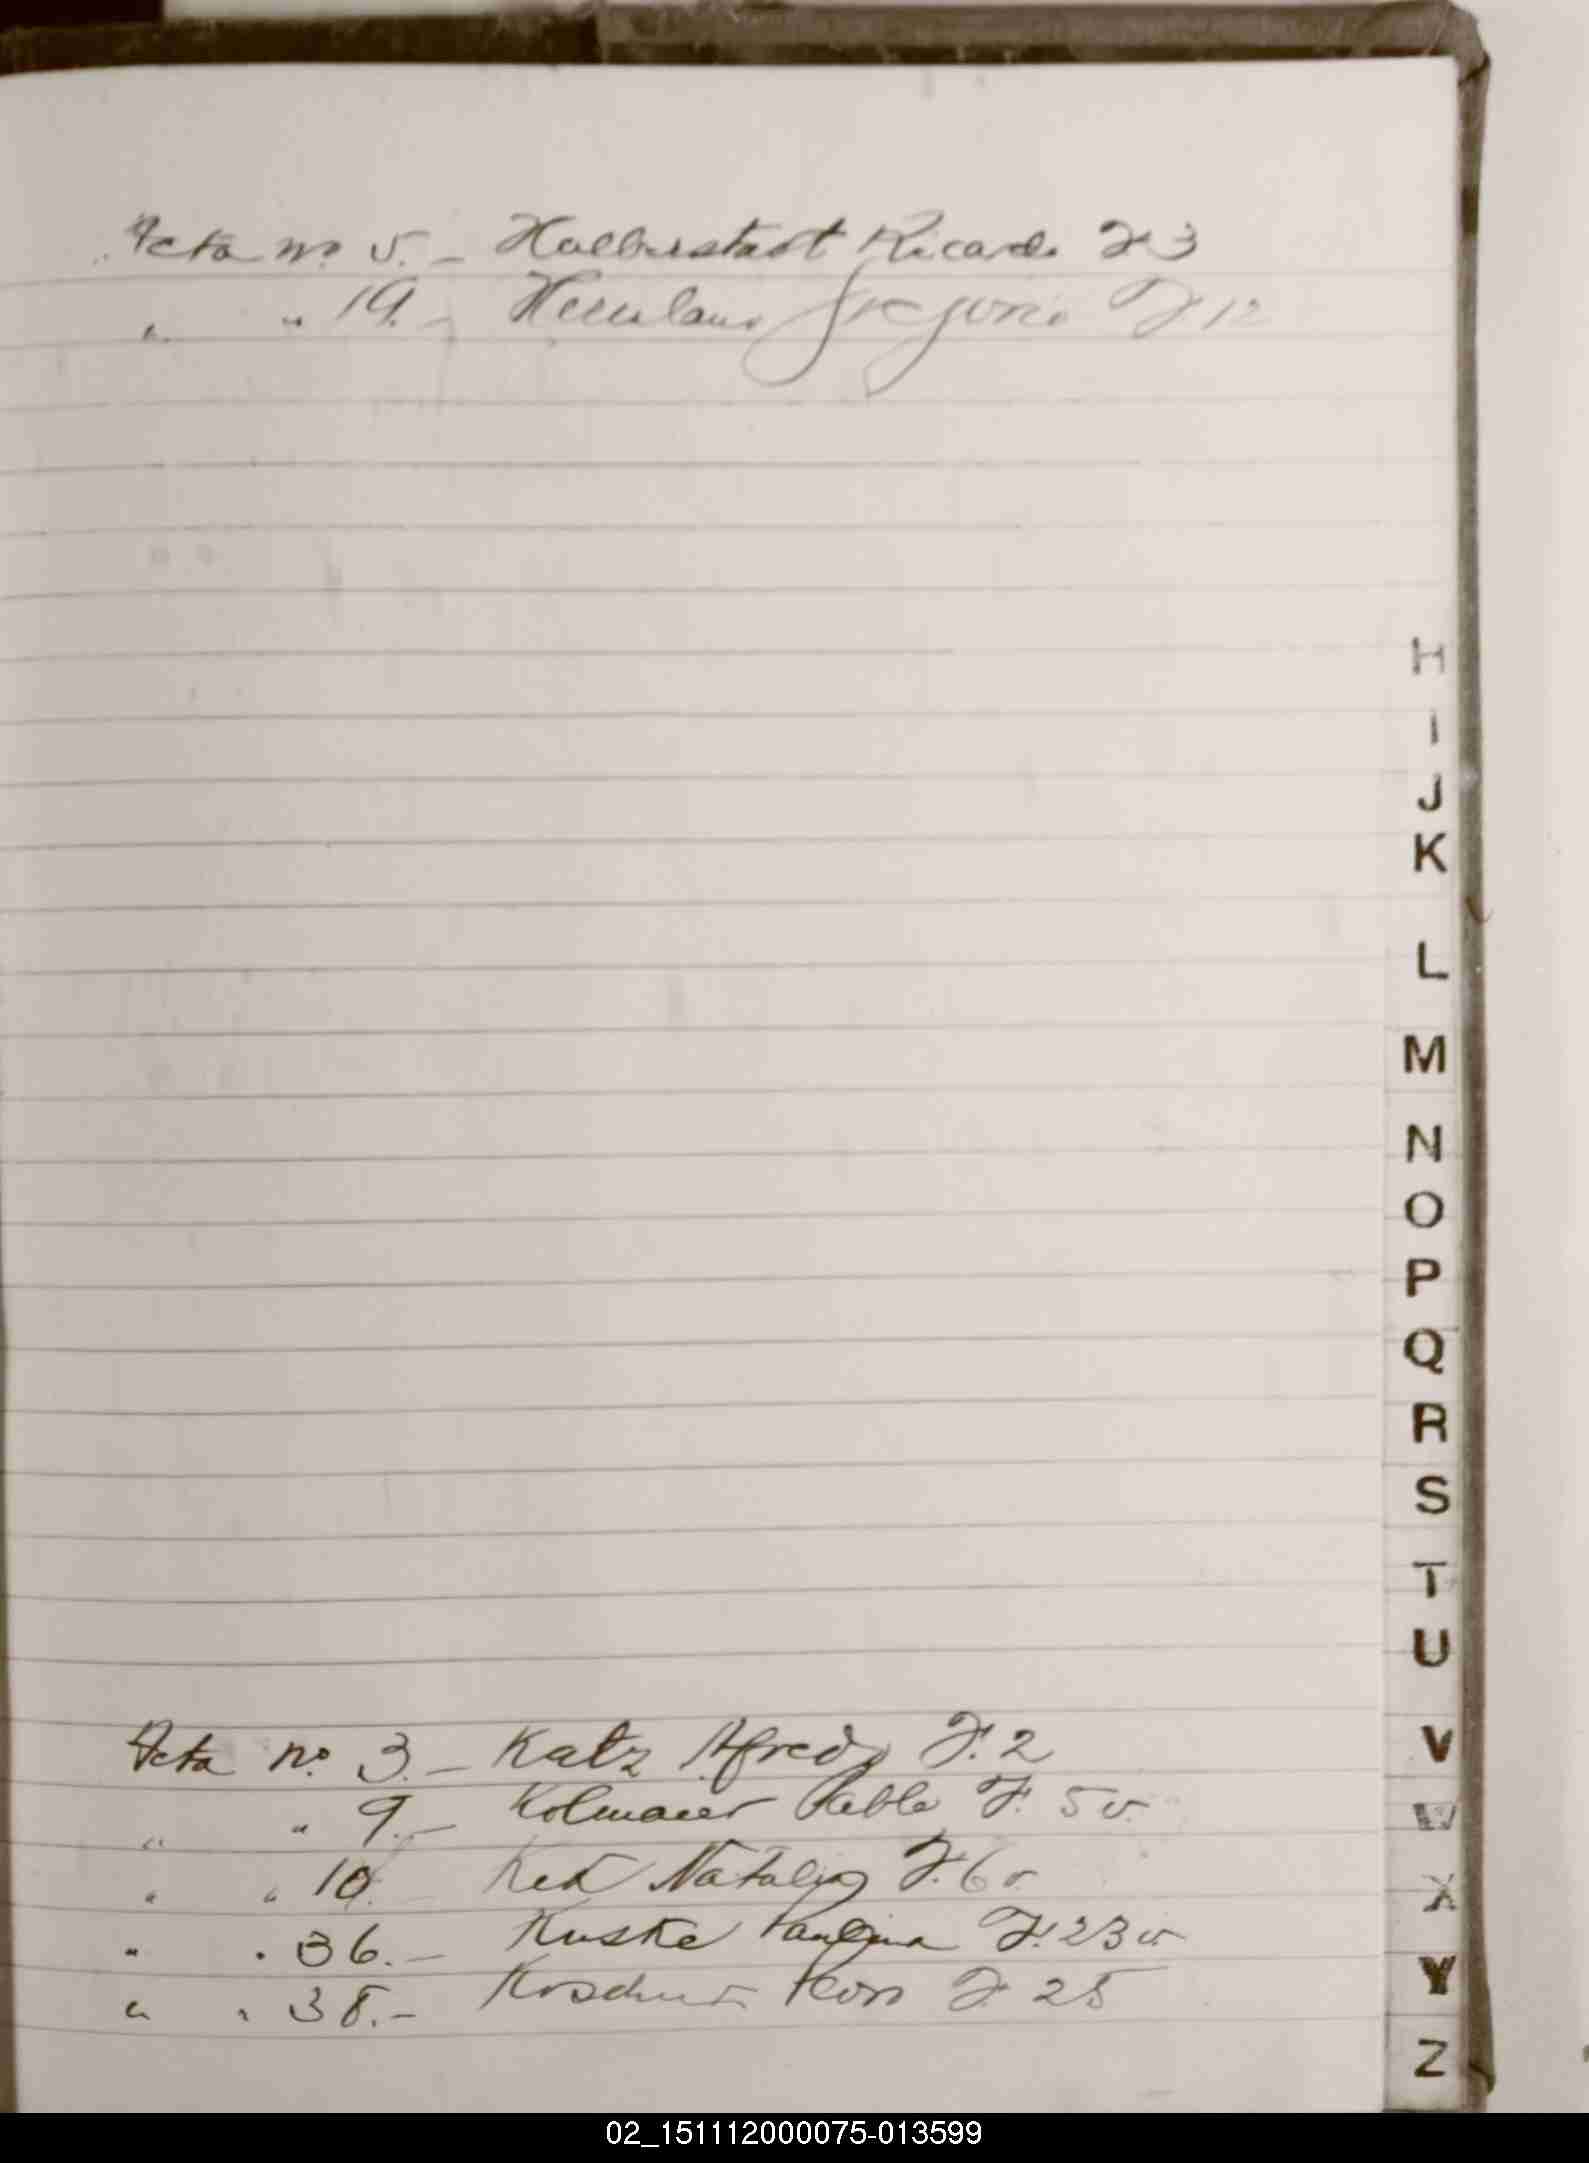 Acta no. 5. - Halberstadt Ricardo F 3
" " 19. - Herculano Gregorio F 12
H
I
J
K
L
M
N
O
P
Q
R
S
T
U
V
W
X
Y
Z
Acta no. 3. - Katz Alfredo F. 2
" " 9. - Kolmaier Pablo F. 5 v.
" " 10. Natalia F. 6 v
" " 36. - Kuske Paulina F. 23 v
" " 38. - F. 25
02_151112000075-013599